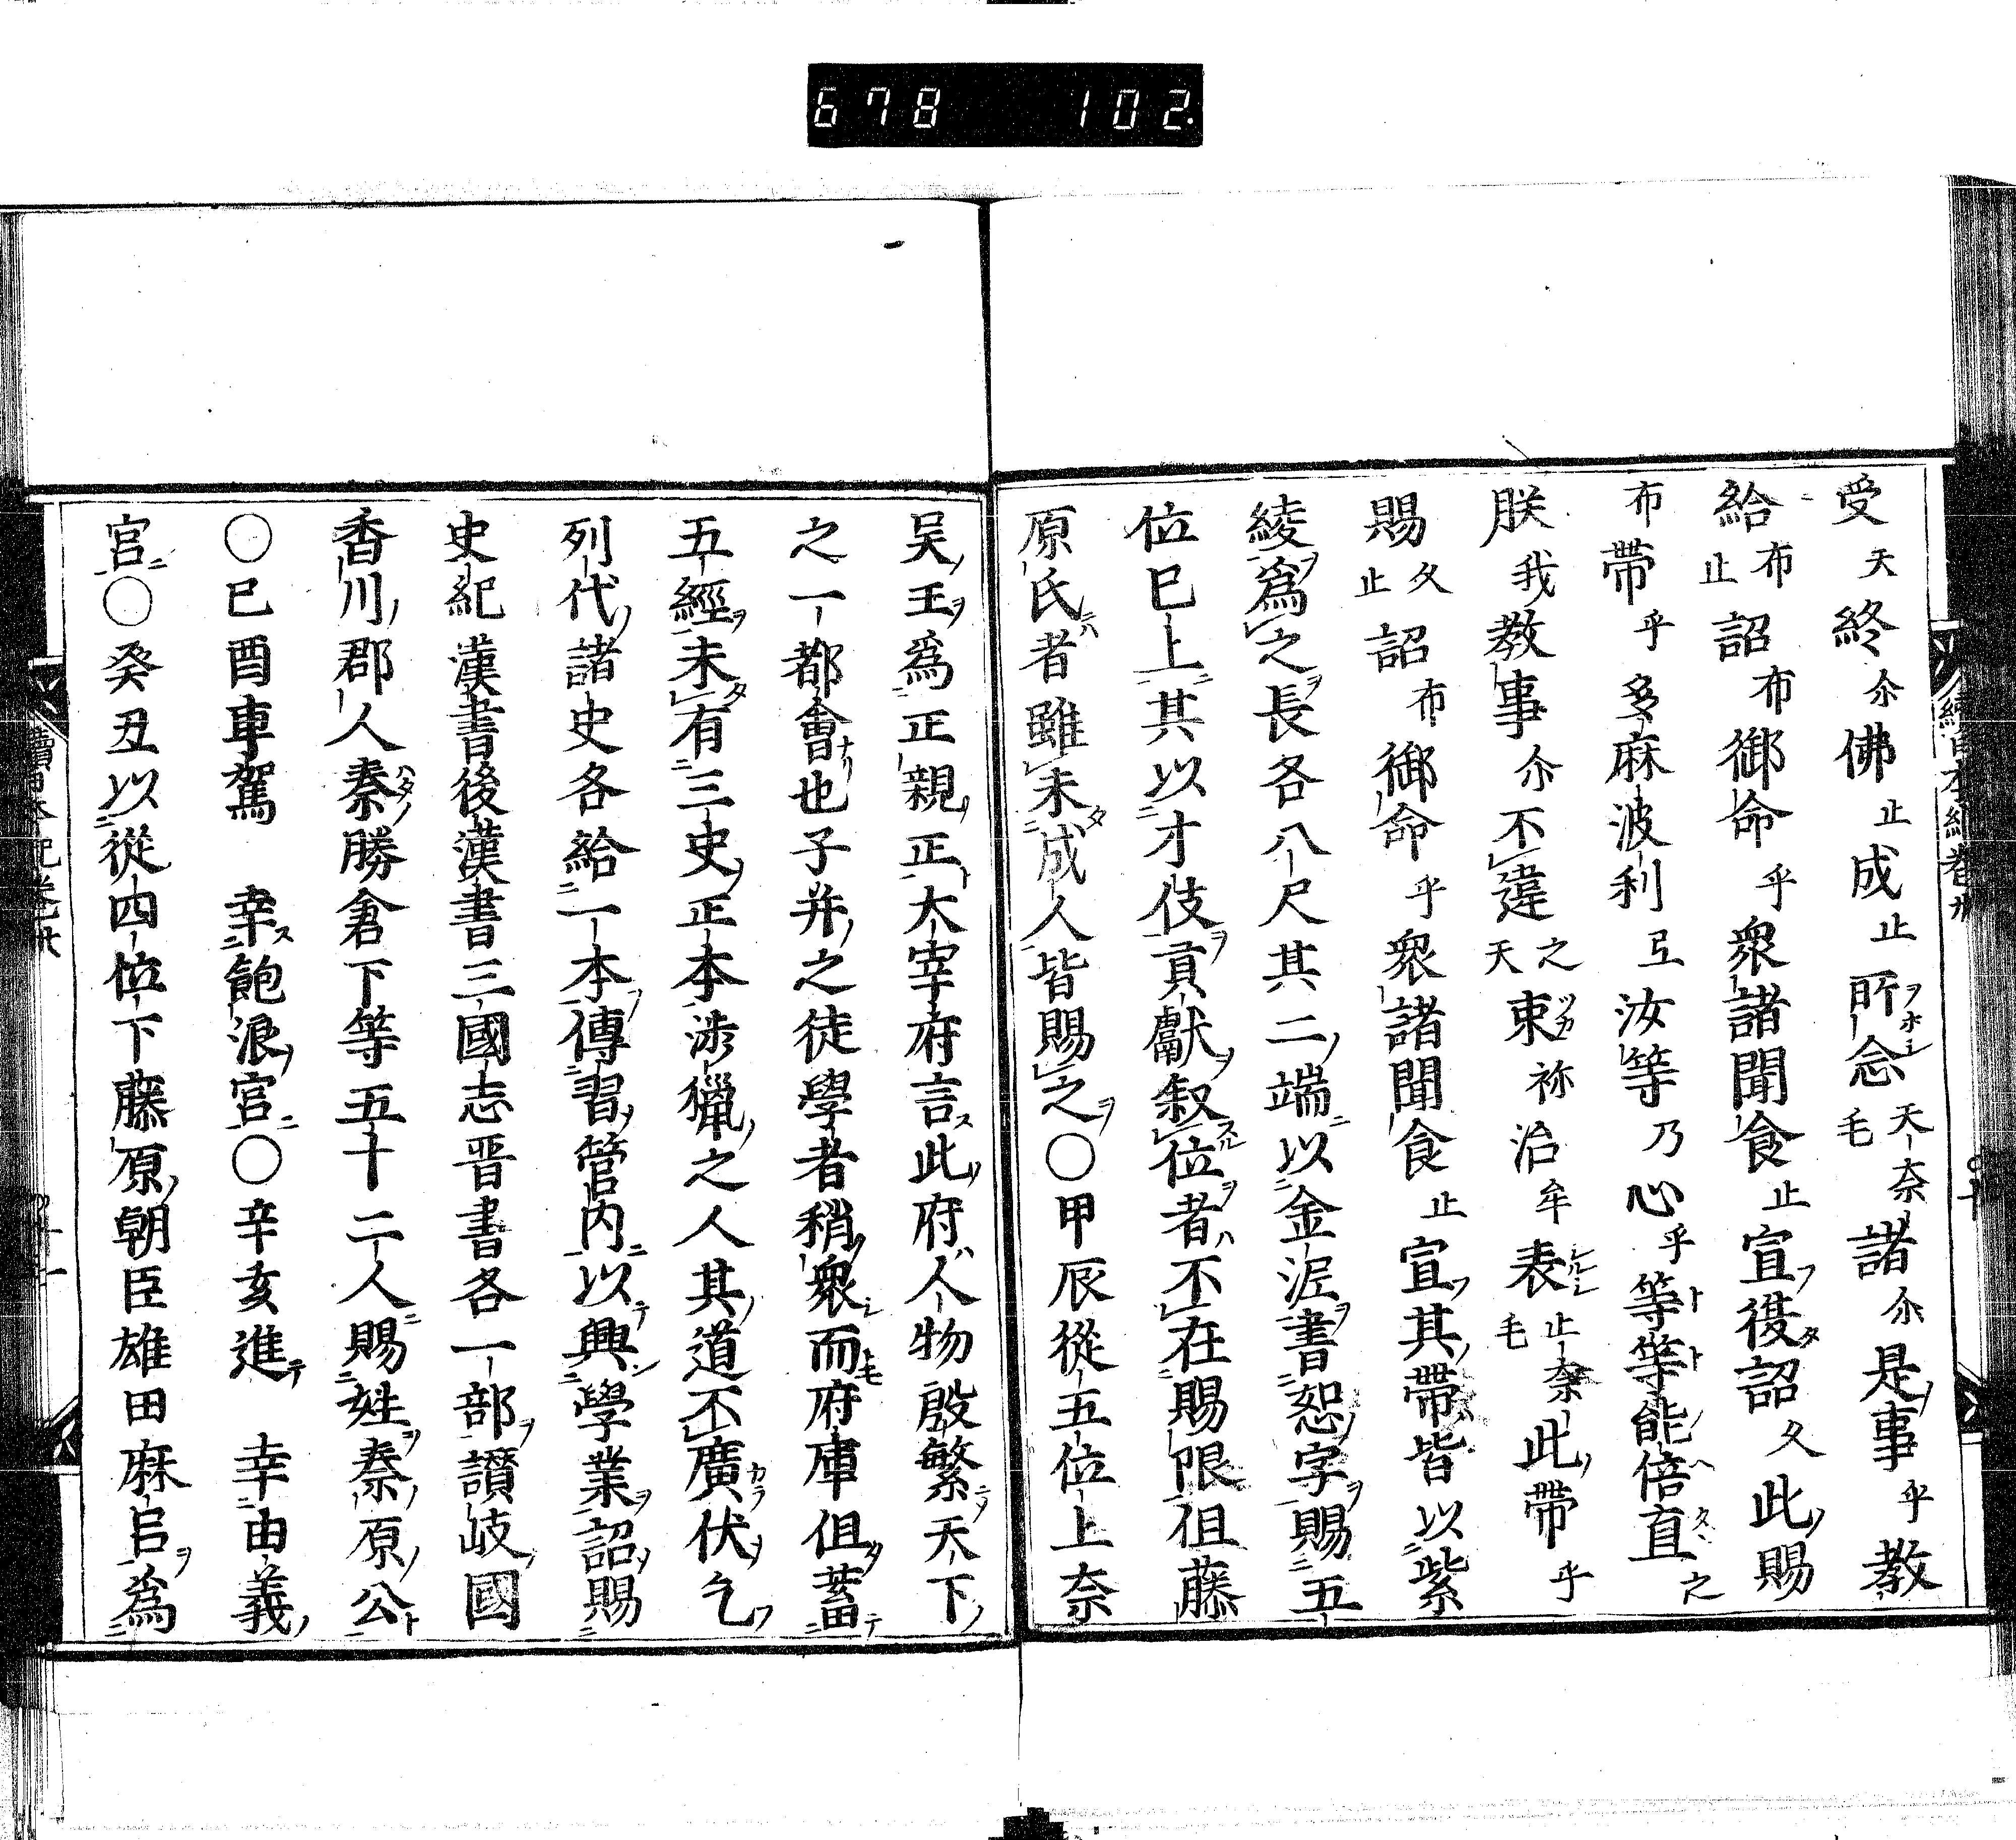 678 102
受天終尓佛止成止所念天奈毛諸尓是事乎教
給布止詔布御命乎衆諸聞食止宣復詔久此賜
布帶乎多麻波利弖汝等乃心乎等等能倍直之
朕我教事尓不違之天束祢治牟表止奈毛此帶乎
賜久止詔布御命乎衆諸聞食止宣其帶皆以紫
綾爲之長各八尺其二端以金泥書恕字賜五
位已上其以才伎貢獻叙位者不在賜限但藤
原氏者雖未成人皆賜之○甲辰從五位上奈
吴王爲正親正大宰府言此府人物殷繁天下
之一都會也子弁之徒學者稍衆而府庫但蓄
五經未有三史正本渉獵之人其道不廣伏乞
列代諸史各給一本傳習管内以興學業詔賜
史紀漢書後漢書三國志晋書各一部讃岐國
香川郡人秦勝倉下等五十二人賜姓秦原公
○已酉車駕 幸飽浪宮○辛亥進 幸由義
宮○癸丑以從四位下藤原朝臣雄田麻呂爲